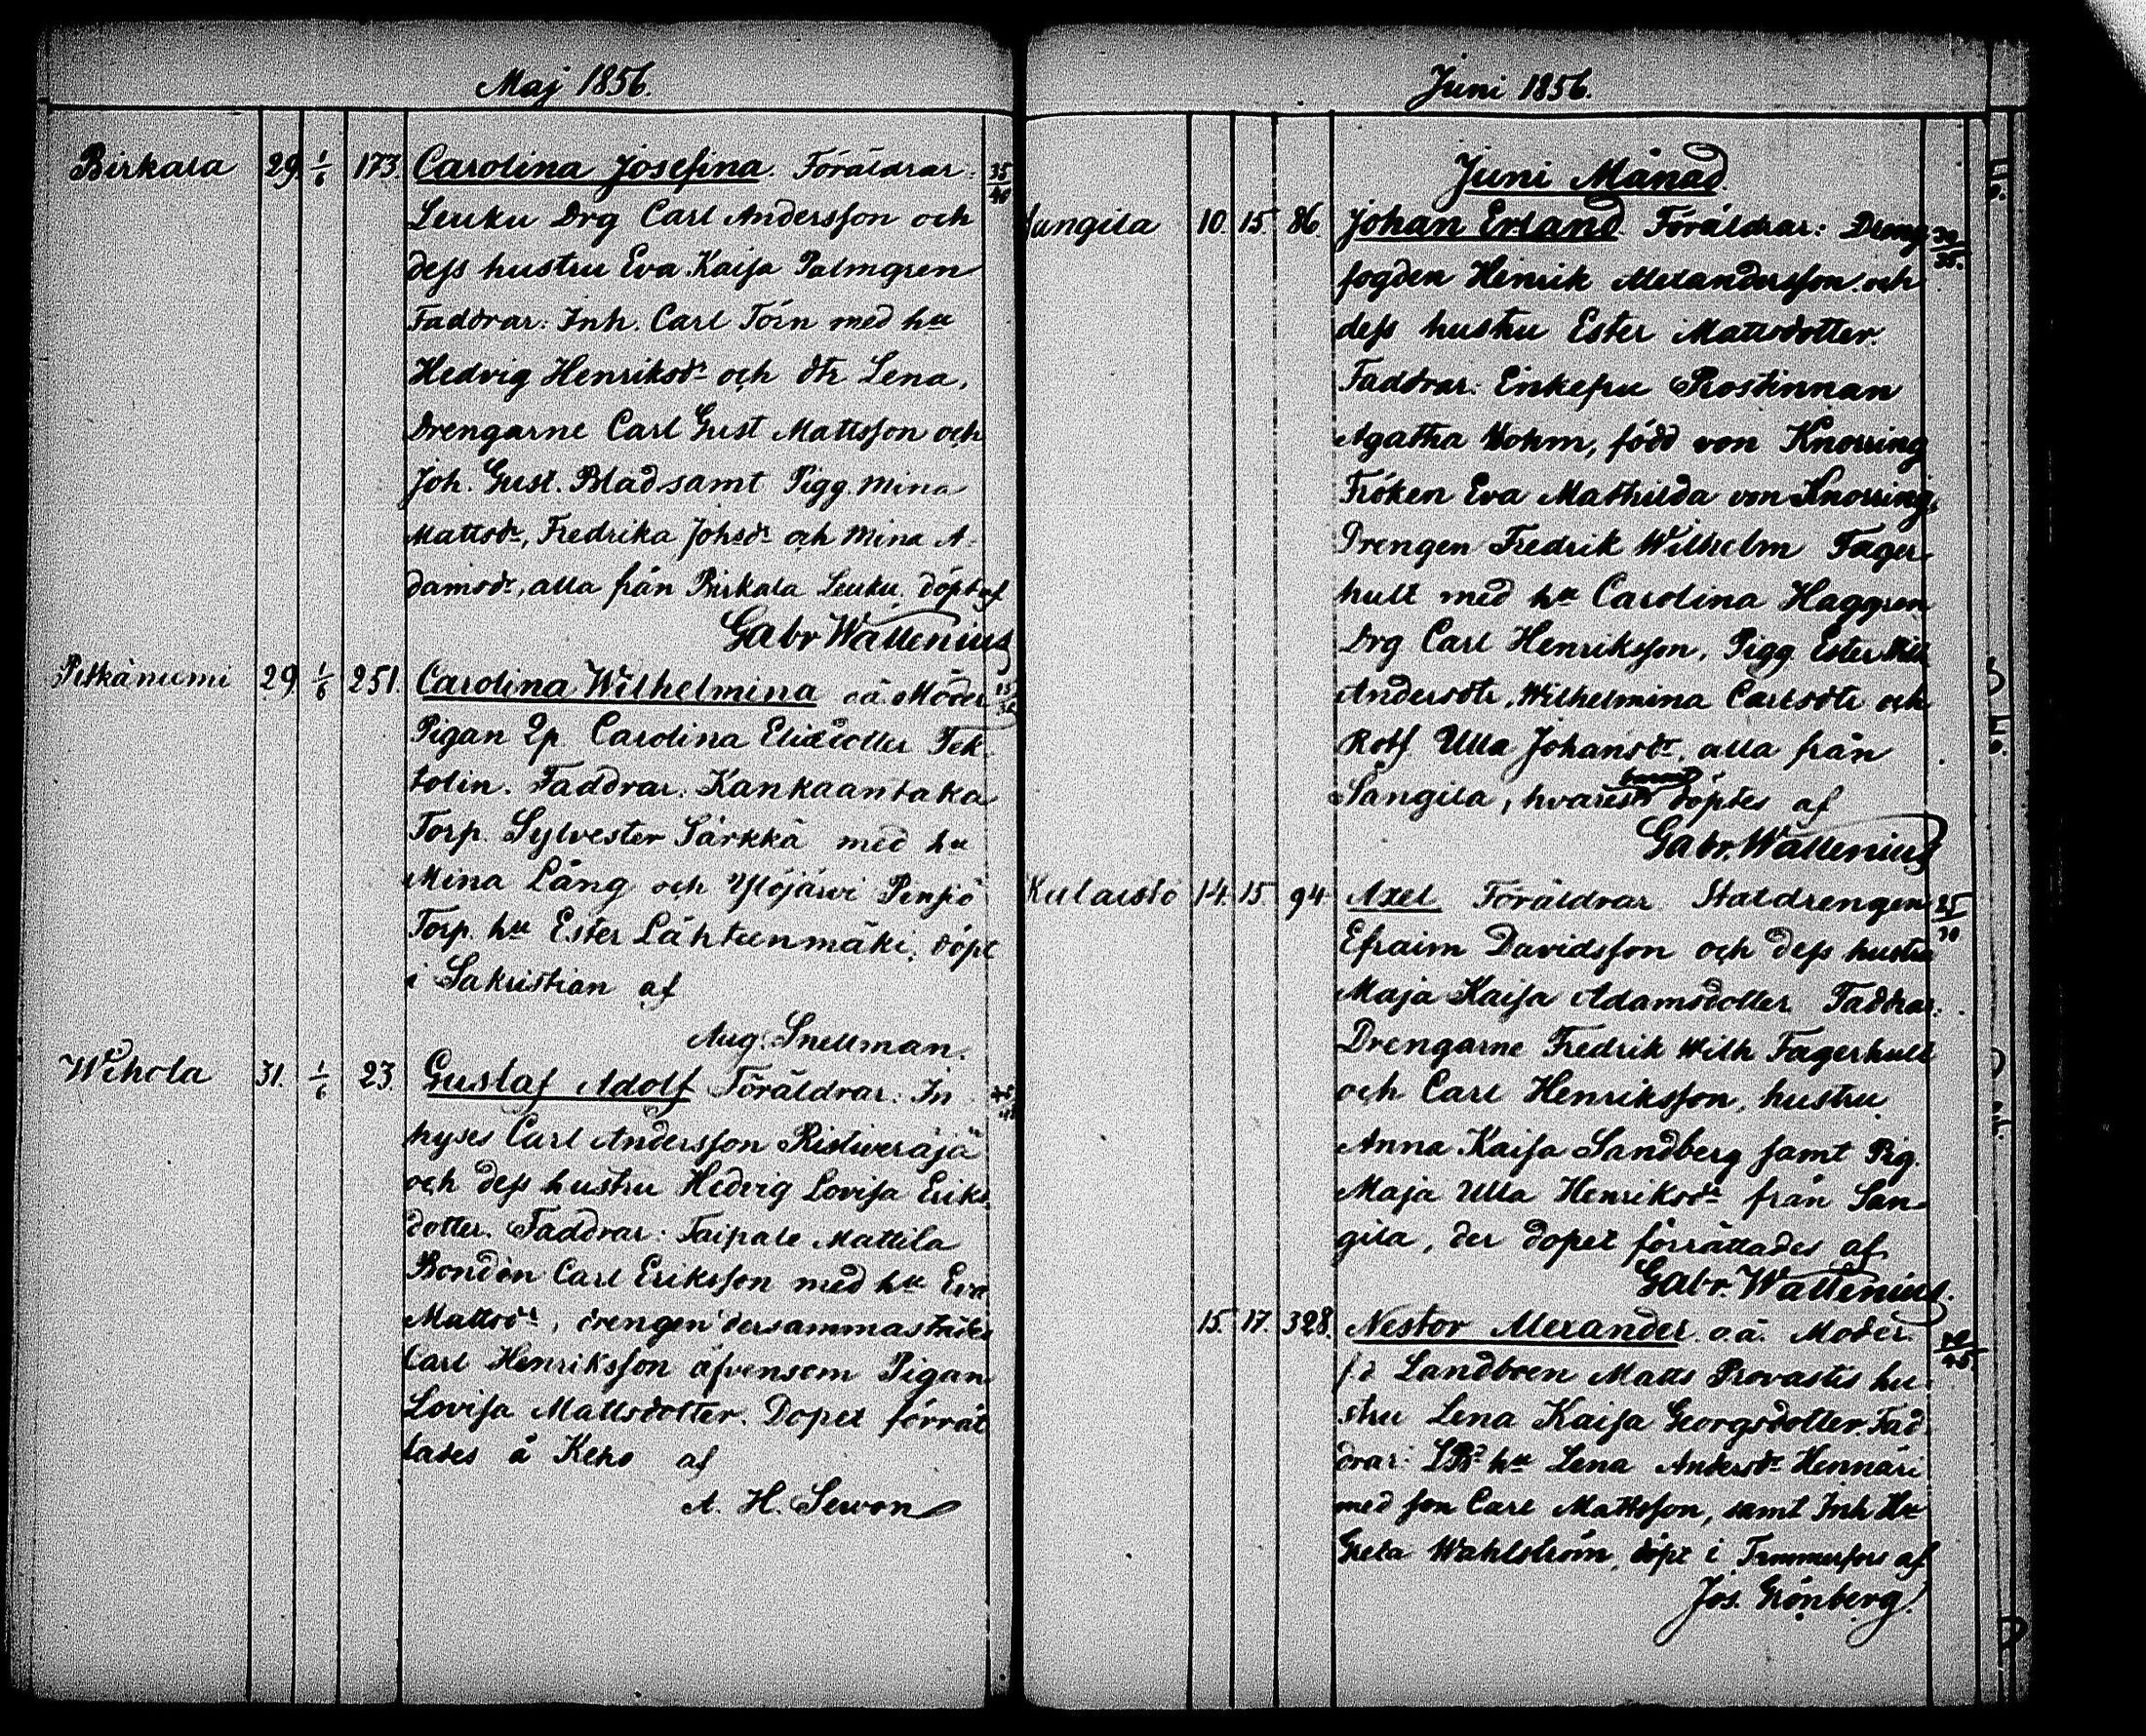 Maj 1856.
Birkala 29. 1/6 173. Carolina Josefina. Föräldrar: 35/40
Leuku Drg Carl Andersson och
dess hustru Eva Kaisa Palmgren
Faddrar: Inh. Carl Törn med hu
Hedvig Henriksdr och dtr Lena,
Drengarne Carl Gust Mattsson och
Joh. Gust. Blad samt Pigg. Mina
Mattsdr, Fredrika Johsdr och Mina A-
damsdr, alla från Birkala Leuku. döpt af
Gabr Wallenius
Pitkäniemi 29. 1/6 251. Carolina Wilhelmina oä. Moder
Pigan Carolina Eliædotter Tek-
tolin. Faddrar. Kankaantaka
Torp. Sylvester Särkkä med hu
Mina Lång och Ylöjärvi Penjiö
Torp. hu Ester Lähteenmäki, döpt
i Sakristian af
Aug. Snellman.
Wihola 31. 1/6 23. Gustaf Adolf Föräldrar: In-
hyses Carl Andersson Ristiveräjä
och dess hustru Hedvig Lovisa Eriks
dotter. Faddrar: Taipale Mattila
Bonden Carl Eriksson med hu Eva
Mattsdr, drengen dersammastädes
Carl Henriksson äfvensom Pigan
Lovisa Mattsdotter. Dopet förrät
tades å Keho af
A. H. Sewon
Juni 1856.
Juni Månad.
Sangila 10. 15. 86. Johan Erland Föräldrar: Dreng
fogden Henrik Alexandersson och
dess hustru Ester Mattsdotter.
Faddrar: Enkefru Prostinnan
Agatha Wohm, född von Knorring
Fröken Eva Mathilda von Knorring,
Drengen Fredrik Wilhelm Fager-
hult med hu Carolina Haggren
Drg Carl Henriksson, Pigg. Ester Mill
Andersdtr, Wilhelmina Carlsdtr och
Rotf Ulla Johansdr, alla från
Sangila, hvarest barnet döptes af
Gabr. Wallenius
Kulaisto 14. 15. 94. Axel Föräldrar Staldrengen 25/30
Efraim Davidsson och dess hustru
Maja Kaisa Adamsdotter. Faddrar:
Drengarne Fredrik Wilh Fagerhult
och Carl Henriksson, hustru
Anna Kaisa Sandberg samt Pig.
Maja Ulla Henriksdr från San-
gila, der dopet förrättades af
Gabr. Wallenius.
15. 17. 328. Nestor Alexander. o.ä. Moder:
fd Landboen Matts Provastis hu-
stru Lena Kaisa Georgsdotter. Fad-
drar: hu Lena Andersdr Hennäri
med son Carl Mattsson, samt Inh Hu
Greta Wahlström, döpt i Tammerfors af
Jos. Grönberg.